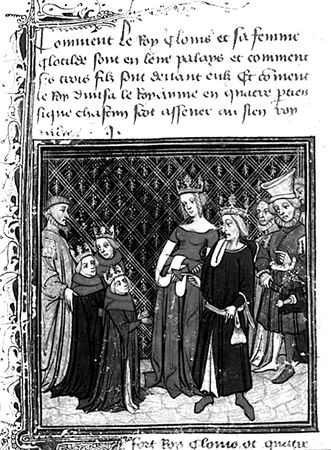 Comment le Roy Clouis et sa femme
Clotilde sont en leur palays et comment
ses trois filz sont deuant eulx Et coment
le Roy diuisa le Royaume en quatre pties
si que chascun scet assener au sien
fort Roy Clouis ot quatre